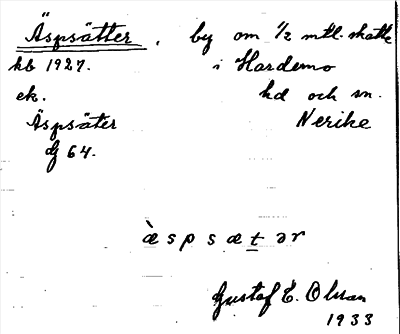 Äspsätter, by om 1/2 mtl. skatte
kb 1927. i Hardemo
ek. hd och sn.
Äspsäter Nerike
dj 64.
æ̀spsæt̲ər
Gustaf E. Olsson
1933